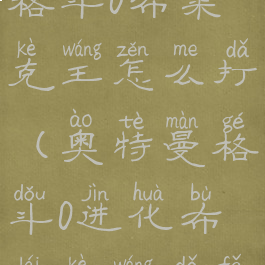 格斗0布莱
kè wáng zěn me dǎ
克王怎么打
ào tè màn gé
（奥特曼格
dǒu jìn huà bù
斗0进化布
lái kè wáng dǎ fǎ